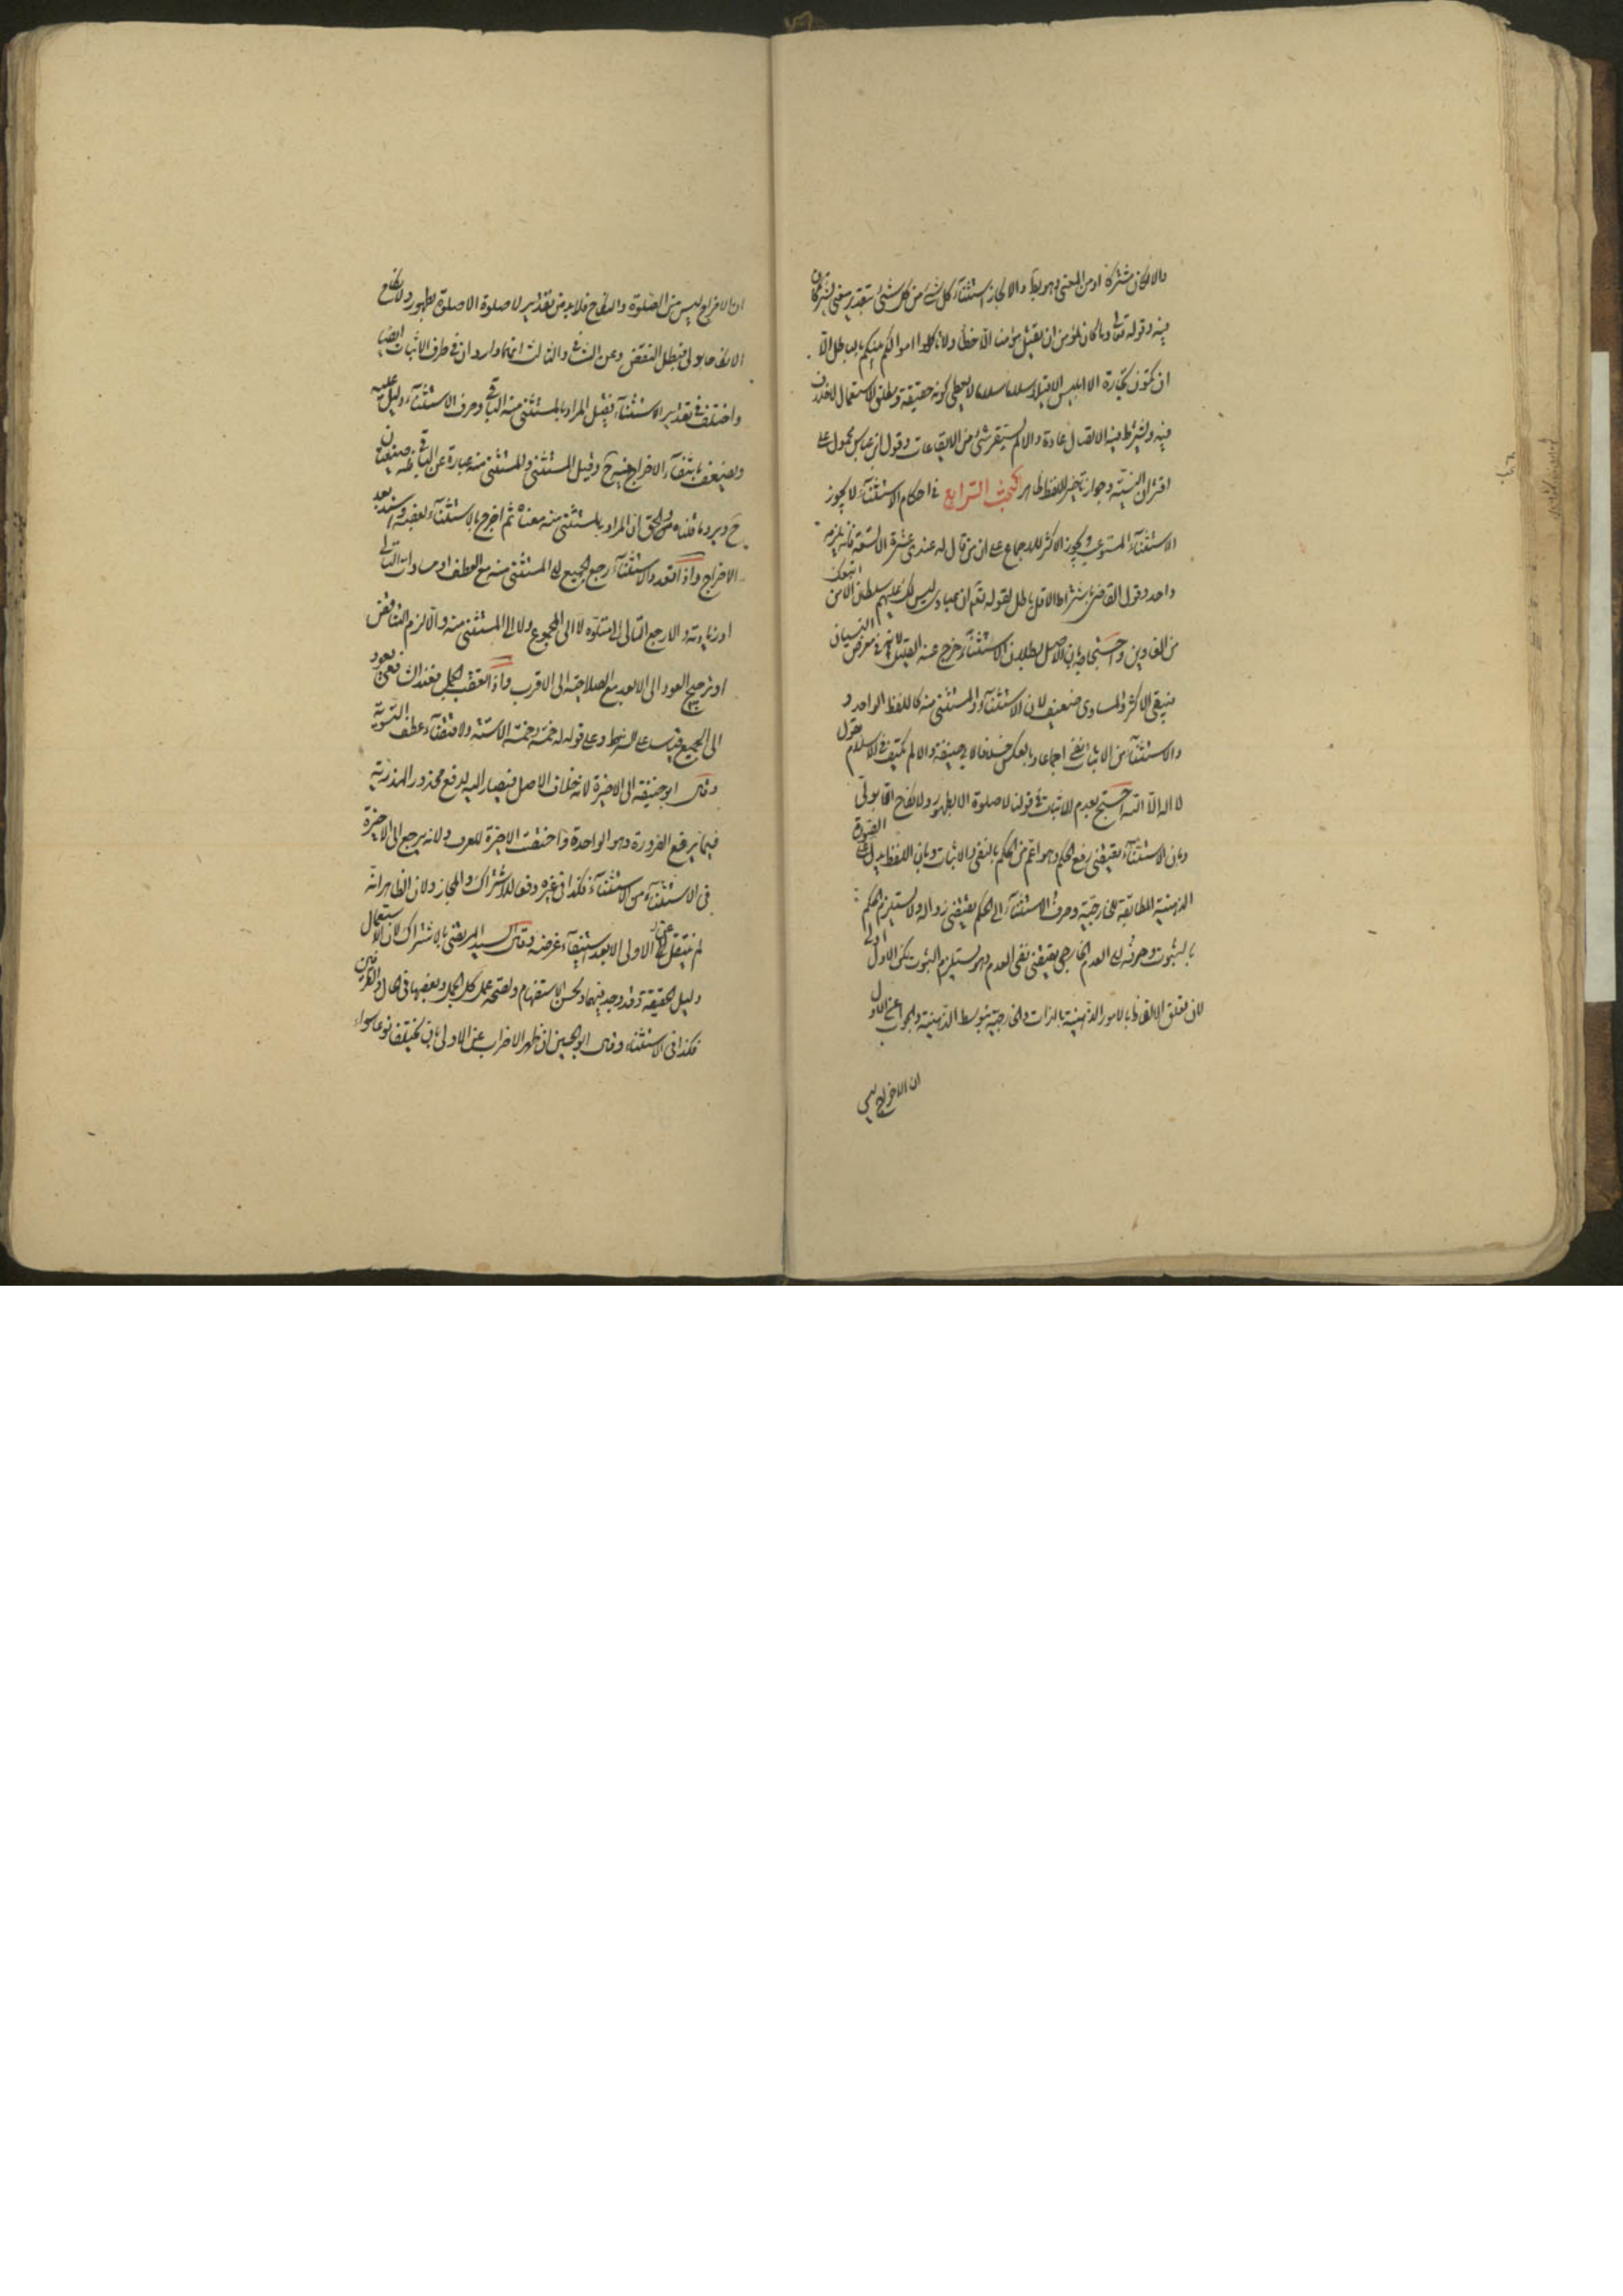 والا لكان مشتركا او من المعنى وهو يط والا لجاز استثناء كل شئ من كل شئ بتقدير معنى يشتركان
فيه وقوله تعالى وما كان لمؤمن ان يقتل مؤمنا الا خطأ ولا تأكلوا اموالكم بينكم بالباطل الا
ان تكون تجارة الا ابليس الا قيلا سلاما سلاما لا يعطى كونه حقيقة ومطلق الاستعمال لا خلاف
فيه ويشترط فيه الاتصال عادة والا لم يستقر شئ من الايقاعات وقول ابن عباس محمول على
اقتران النية وجواز تأخير اللفظ ظاهر البحث الرابع فى احكام الاستثناء لا يجوز
الاستثناء المستوعب ويجوز الاكثر للاجماع على ان من قال له عندى عشرة الا تسعة فانه يلزمه
واحد وقول القاضى باشتراط الاقل باطل لقوله تعم ان عبادى ليس لك عليهم سلطان الا من اتبعك
من الغاوين واحتجاجه بان الاصل بطلان الاستثناء خرج عنه القليل لانه فى معرض النسيان
فيبقى الاكثر والمساوى ضعيف لان الاستثناء والمستثنى منه كاللفظ الواحد و
والاستثناء من الاثبات نفى اجماعا وبالعكس خلافا لابى حنيفة والا لم يكتف فى الاسلام بقول
لا اله الا الله احتج بعدم الاثبات فى قولنا لا صلوة الا بطهور ولا نكاح الا بولى
وبان الاستثناء يقتضى رفع الحكم وهو اعم من الحكم بالنفى والاثبات وبان اللفظ يدل على الصورة
الذهنية المطابقة للخارجية وصرف الاستثناء الى الحكم يقتضى زواله ولا يستلزم الحكم
بالثبوت وصرفه الى العدم الخارجى يقتضى نفى العدم وهو يستلزم الثبوت لكن الاول اولى
لان تعلق الالفاظ بالامور الذهنية بالذات والخارجية بتوسط الذهنية والجواب عن الاول
ان الاخراج ليس
ان الاخراج ليس من الصلوة والنكاح فلا بد من تقدير لا صلوة الا صلوة بطهور ولا نكاح
الا نكاحا بولى فبطل النقض وعن الثانى والثالث انهما واردان فى طرف الاثبات ايضا
واختلف فى تقدير الاستثناء فقيل المراد بالمستثنى منه الباقى وحرف الاستثناء دليل عليه
ويضعف بانتفاء الاخراج فيه ح وقيل المستثنى والمستثنى منه عبارة عن الباقى فله صيغتان
ح ويرد ما قلناه والحق ان المراد بالمستثنى منه معناه ثم اخرج بالاستثناء بعضه واسند بعد
الاخراج واذا تعدد الاستثناء رجع الجميع الى المستثنى منه مع العطف او مساواة التالى
او زيادته والا رجع التالى الى متلوه لا الى المجموع ولا الى المستثنى منه والا لزم التناقض
او ترجيح العود الى الابعد مع الصلاحية الى الاقرب واذا تعقب الجمل فعند الشافعى يعود
الى الجميع قياسا على الشرط وعلى قوله له خمسة وخمسة الا ستة ولاقتضاء عطف التسوية
وقال ابو حنيفة الى الاخيرة لانه خلاف الاصل فيصار اليه لدفع محذور الهذرية
فيما يرفع الضرورة وهو الواحدة واختصت الاخيرة للعرف ولانه يرجع الى الاخيرة
فى الاستثناء من الاستثناء فكذا فى غيره دفعا للاشتراك والمجاز ولان الظاهر انه
لم ينتقل عن الاولى الا بعد استيفاء غرضه وقال السيد المرتضى بالاشتراك لان الاستعمال
دليل الحقيقة وقد وجد فيهما ولحسن الاستفهام ولصحة عمل كل الجمل وبعضها فى الحال والظرفين
فكذا فى الاستثناء وقال ابو الحسين ان ظهر الاضراب عن الاولى بان يختلفا نوعا سواء